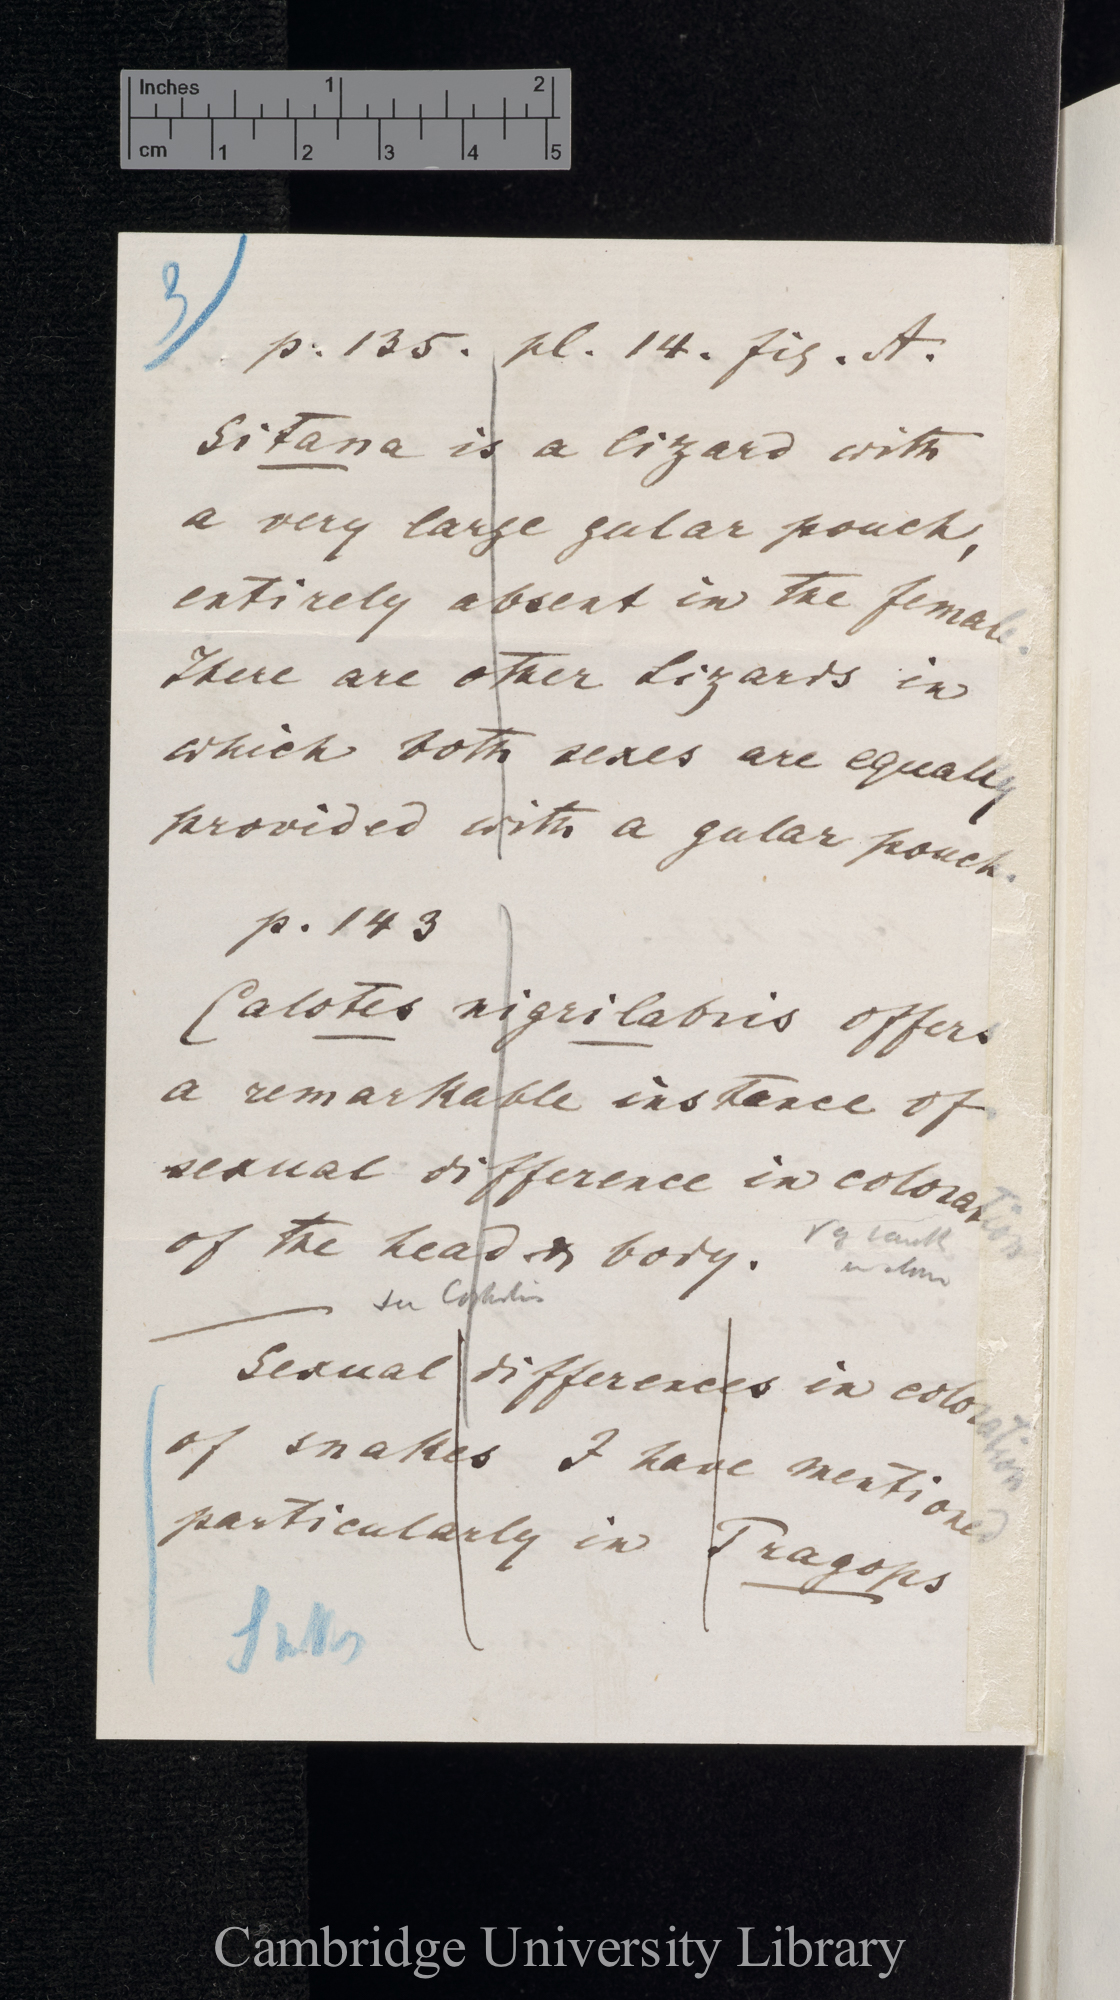 Inches 1 2
cm 1 2 3 4 5
3
p. 135. pl. 14. fig. A.
Sitana is a lizard with
a very large gular pouch,
entirely absent in the female.
There are other Lizards in
which both sexes are equally
provided with a gular pouch.
p. 143
Calotes nigrilabris offers
a remarkable instance of
sexual difference in coloration
of the head & body.
see
Sexual differences in coloration
of snakes I have mentioned
particularly in Tragops
Cambridge University Library